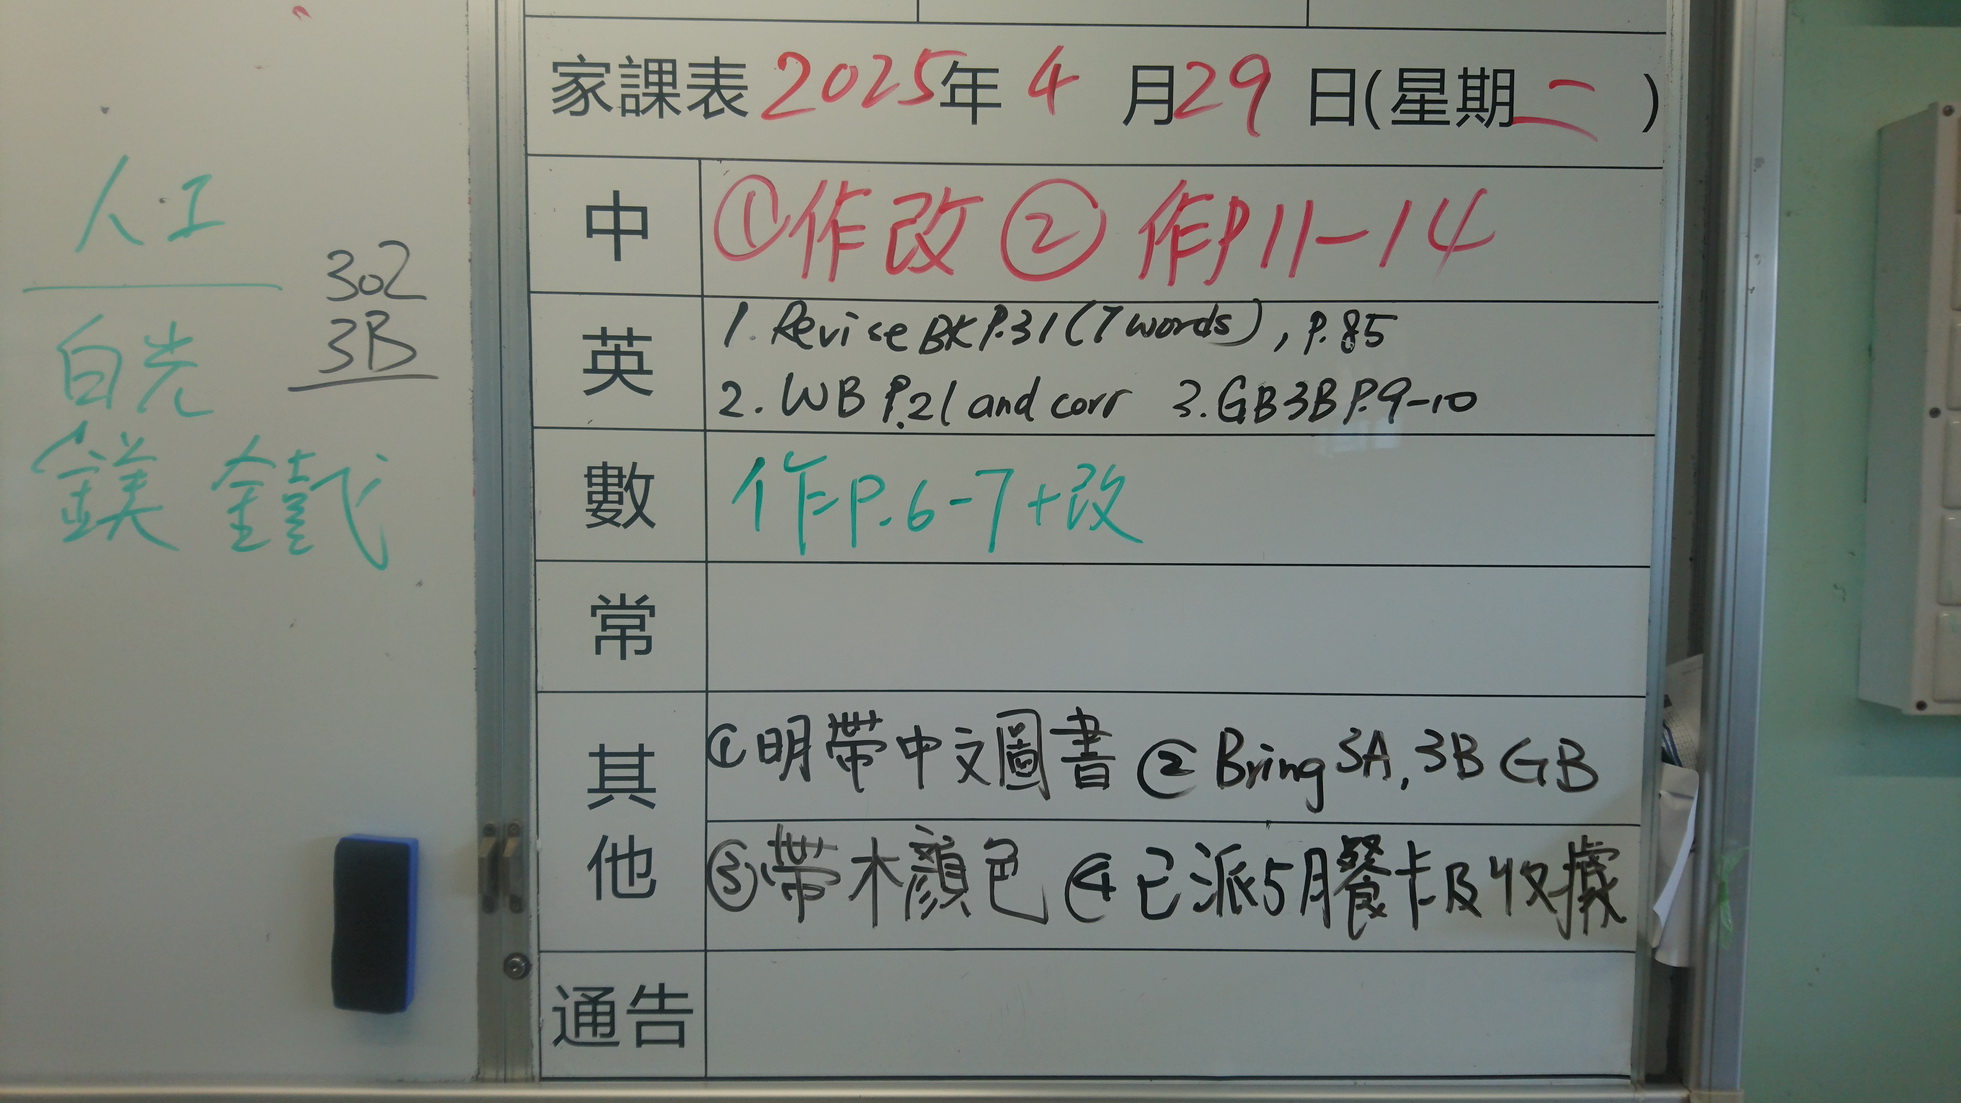 人工
302
3B
白光
鎂 鐵
家課表 2025年 4 月 29 日(星期 二 )
中 ①作改 ② 作P11-14
英 1. Revise BK P.31 (7 words), P.85
2. WB P.21 and corr 3. GB3B P.9-10
數 作P.6-7+改
常
其他 ①明帶中文圖書 ② Bring 3A, 3B GB
③帶木顏色 ④已派5月餐卡及收據
通告